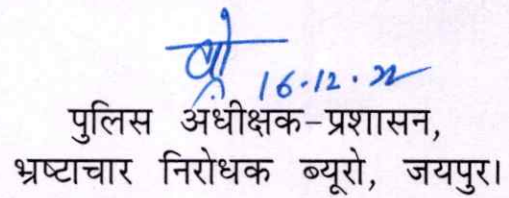 16.12.22
पुलिस अधीक्षक-प्रशासन,
भ्रष्टाचार निरोधक ब्यूरो, जयपुर।